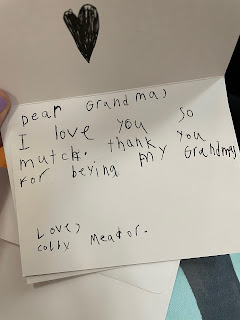 Dear Grandma,
I love you so
mutch. thank you
For beying my Grandma
Love,
colby Meador.